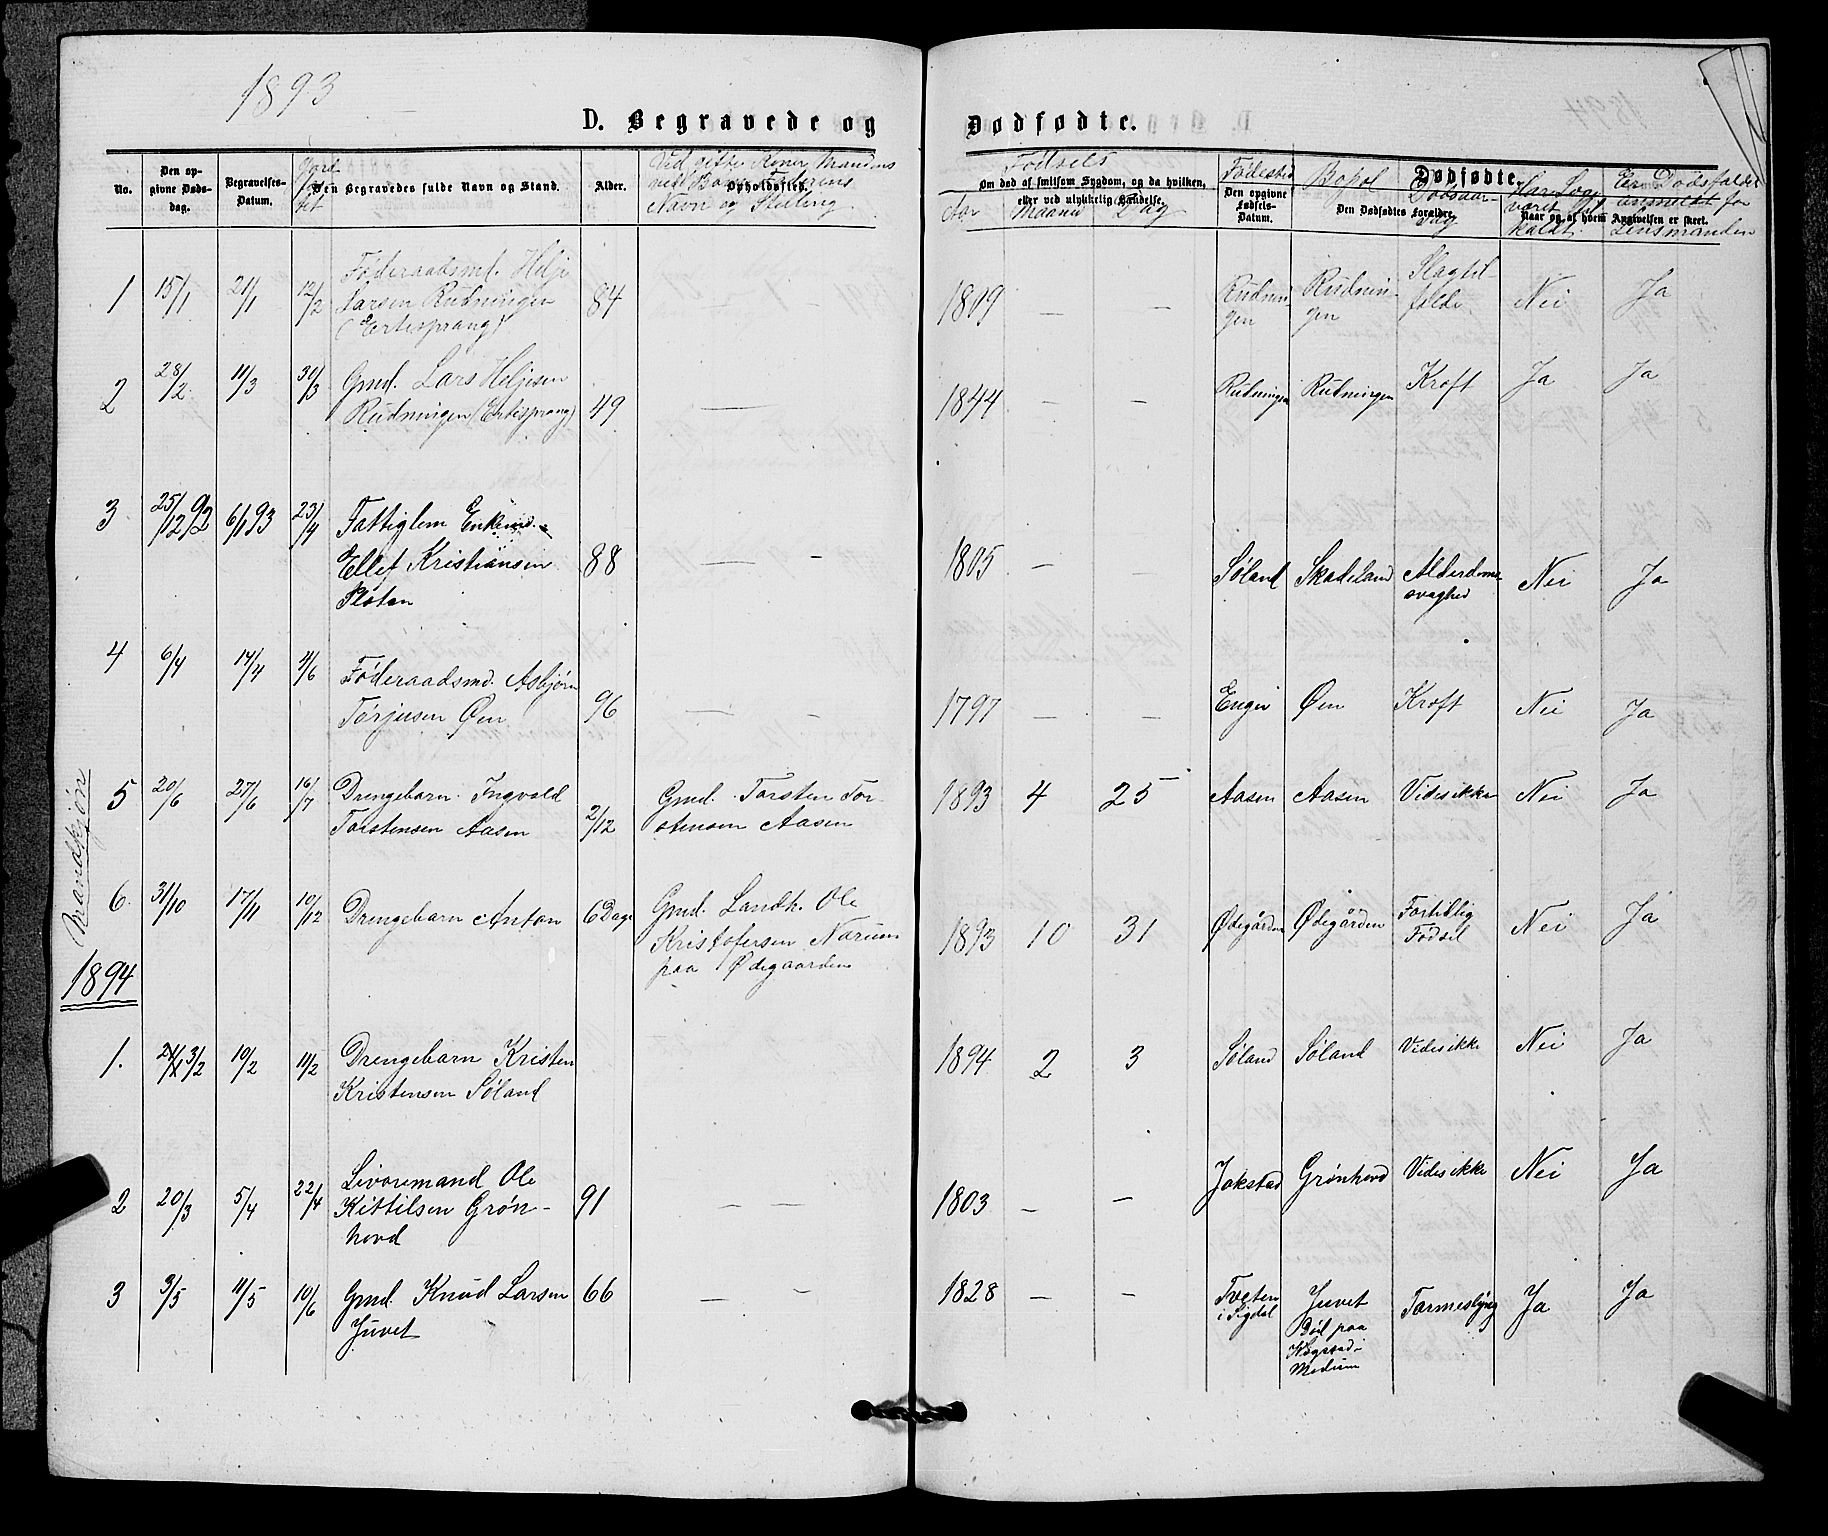 1893
D. Begravede og Dødfødte.
No.
Den opgivne Dødsdag.
Begravelses-Datum.
Jordfæstet
Den Begravedes fulde Navn og Stand.
Alder.
Opholdssted.
Ved gifte Koner Mandens
ved Børn Faderens
Navn og Stilling
Fødsels
Om død af smitsom Sygdom, og da hvilken,
eller ved ulykkelig Hændelse.
Aar Maaned Dag
Fødested
Den opgivne Fødsels-Datum.
Bopæl
Dødfødte.
Den Dødfødtes Forældre.
Dødsaarsag
Har Læge været tilkaldt.
Er Dødsfaldet anmeldt for Lensmanden
Naar og af hvem Angivelsen er skeet.
Mandkjøn
1 15/1 21/1 12/2 Føderaadsmd. Helje
Larsen Rudningen
(Ertesprang) 84 1809 — — Rudningen Rudningen Slagtilfælde Nei Ja
2 28/2 11/3 31/3 Gmd. Lars Heljesen
Rudningen (Ertesprang) 49 — 1844 — — Rudningen Rudningen Kræft Ja Ja
3 25/12 92 6/1 93 23/4 Fattiglem Enkemd.
Ellef Kristiansen
Pløten 88 — - 1805 — — Søland Skadeland Alderdomssvaghed Nei Ja
4 6/4 14/4 4/6 Føderaadsmd. Asbjørn
Torjusen Øen 96 — — 1797 — — Enger Øen Kræft Nei Ja
5 20/6 27/6 16/7 Drengebarn Ingvald
Torstensen Aasen 2/12 Gmd. Torsten Torstensen Aasen 1893 4 25 Aasen Aasen Vides ikke Nei Ja
6. 31/10 17/11 10/12 Drengebarn Anton 6 Dage Gmd. Landh. Ole
Kristofersen Narum
paa Ødegaarden 1893 10 31 Ødegården Ødegården Fortidlig
Fødsel Nei Ja
1894
1. 3/2 10/2 11/2 Drengebarn Kristen
Kristensen Søland 1894 2 3 Søland Søland Vides ikke Nei Ja
2 20/3 5/4 22/4 Livøremand Ole
Kittilsen Grønhovd 91 — — 1803 — — Jokstad Grønhovd Vides ikke Nei Ja
3 3/5 11/5 10/6 Gmd. Knud Larsen
Juvet 66 — — 1828 — — Tveten
i Sigdal Juvet
Modum Tarmeslyng Ja Ja